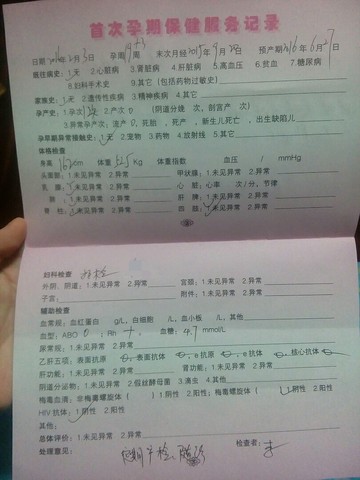 首次孕期保健服务记录
日期 年 月 日 孕周 周 末次月经 2015年9月 日 预产期 2016年6月27日
既往病史：1.无 2.心脏病 3.肾脏病 4.肝脏病 5.高血压 6.贫血 7.糖尿病
8.妇科手术史 9.其它（包括药物过敏史）
家族史：1.无 2.遗传性疾病 3.精神疾病 4.其它
孕产史：1.孕次 2.产次 0（阴道分娩 次，剖宫产 次）
3.异常孕产次：流产 0，死胎 ，死产 ，新生儿死亡 ，出生缺陷儿
孕早期异常接触史：1.无 2.宠物 3.药物 4.放射线 5.其它
体格检查
身高 162 cm 体重 Kg 体重指数 血压 / mmHg
头面部：1.未见异常 2.异常 甲状腺：1.未见异常 2.异常
乳 腺：1.未见异常 2.异常 心 脏：心率 次/分，节律
肺：1.未见异常 2.异常 肝 脾：1.未见异常 2.异常
脊 柱：1.未见异常 2.异常 四 肢：1.未见异常 2.异常
妇科检查
外阴、阴道：1.未见异常 2.异常 宫颈：1.未见异常 2.异常
子宫： 附件：1.未见异常 2.异常
辅助检查
血常规：血红蛋白 g/L，白细胞 /L，血小板 /L，其他
血型：ABO O；Rh + 血糖：4.7 mmol/L
尿常规：1.未见异常 2.异常
乙肝五项：表面抗原 表面抗体 e抗原 e抗体 核心抗体
肝功能：1.未见异常 2.异常 肾功能：1.未见异常 2.异常
阴道分泌物：1.未见异常 2.假丝酵母菌 3.滴虫 4.其他
梅毒血清：非梅毒螺旋体（ ）1.阴性 2.阳性 梅毒螺旋体（ ）1.阴性 2.阳性
HIV抗体：1.阴性 2.阳性
其他：
总体评价：1.未见异常 2.异常
处理意见： 定期产检、随诊 检查者：